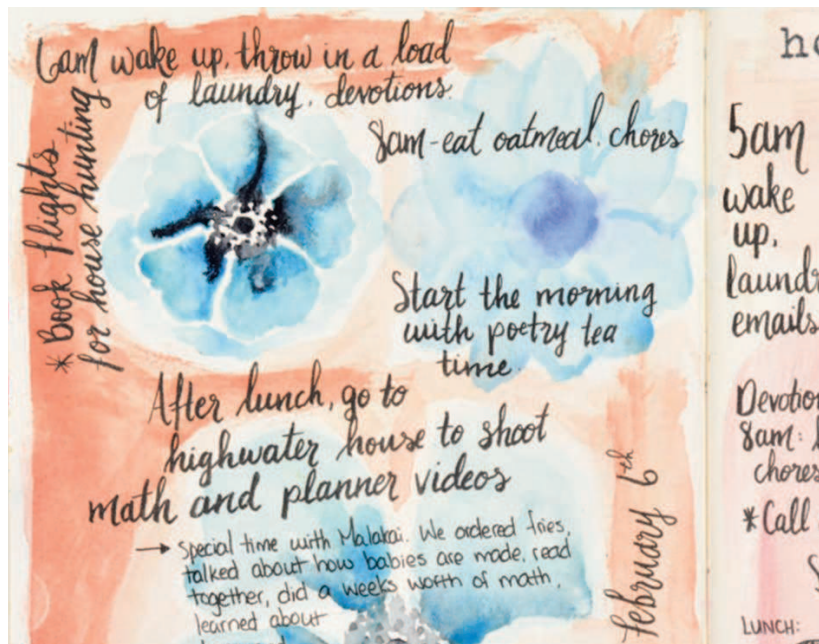 6am wake up, throw in a load
of laundry, devotions.
* Book flights
for house hunting
8am-eat oatmeal, chores
Start the morning
with poetry tea
time.
After lunch, go to
highwater house to shoot
math and planner videos
→ Special time with Malakai. We ordered fries,
talked about how babies are made, read
together, did a weeks worth of math,
learned about
february 6th
5am
wake
up,
laundr
emails
Devotion
8am:
chores
*Call
LUNCH: